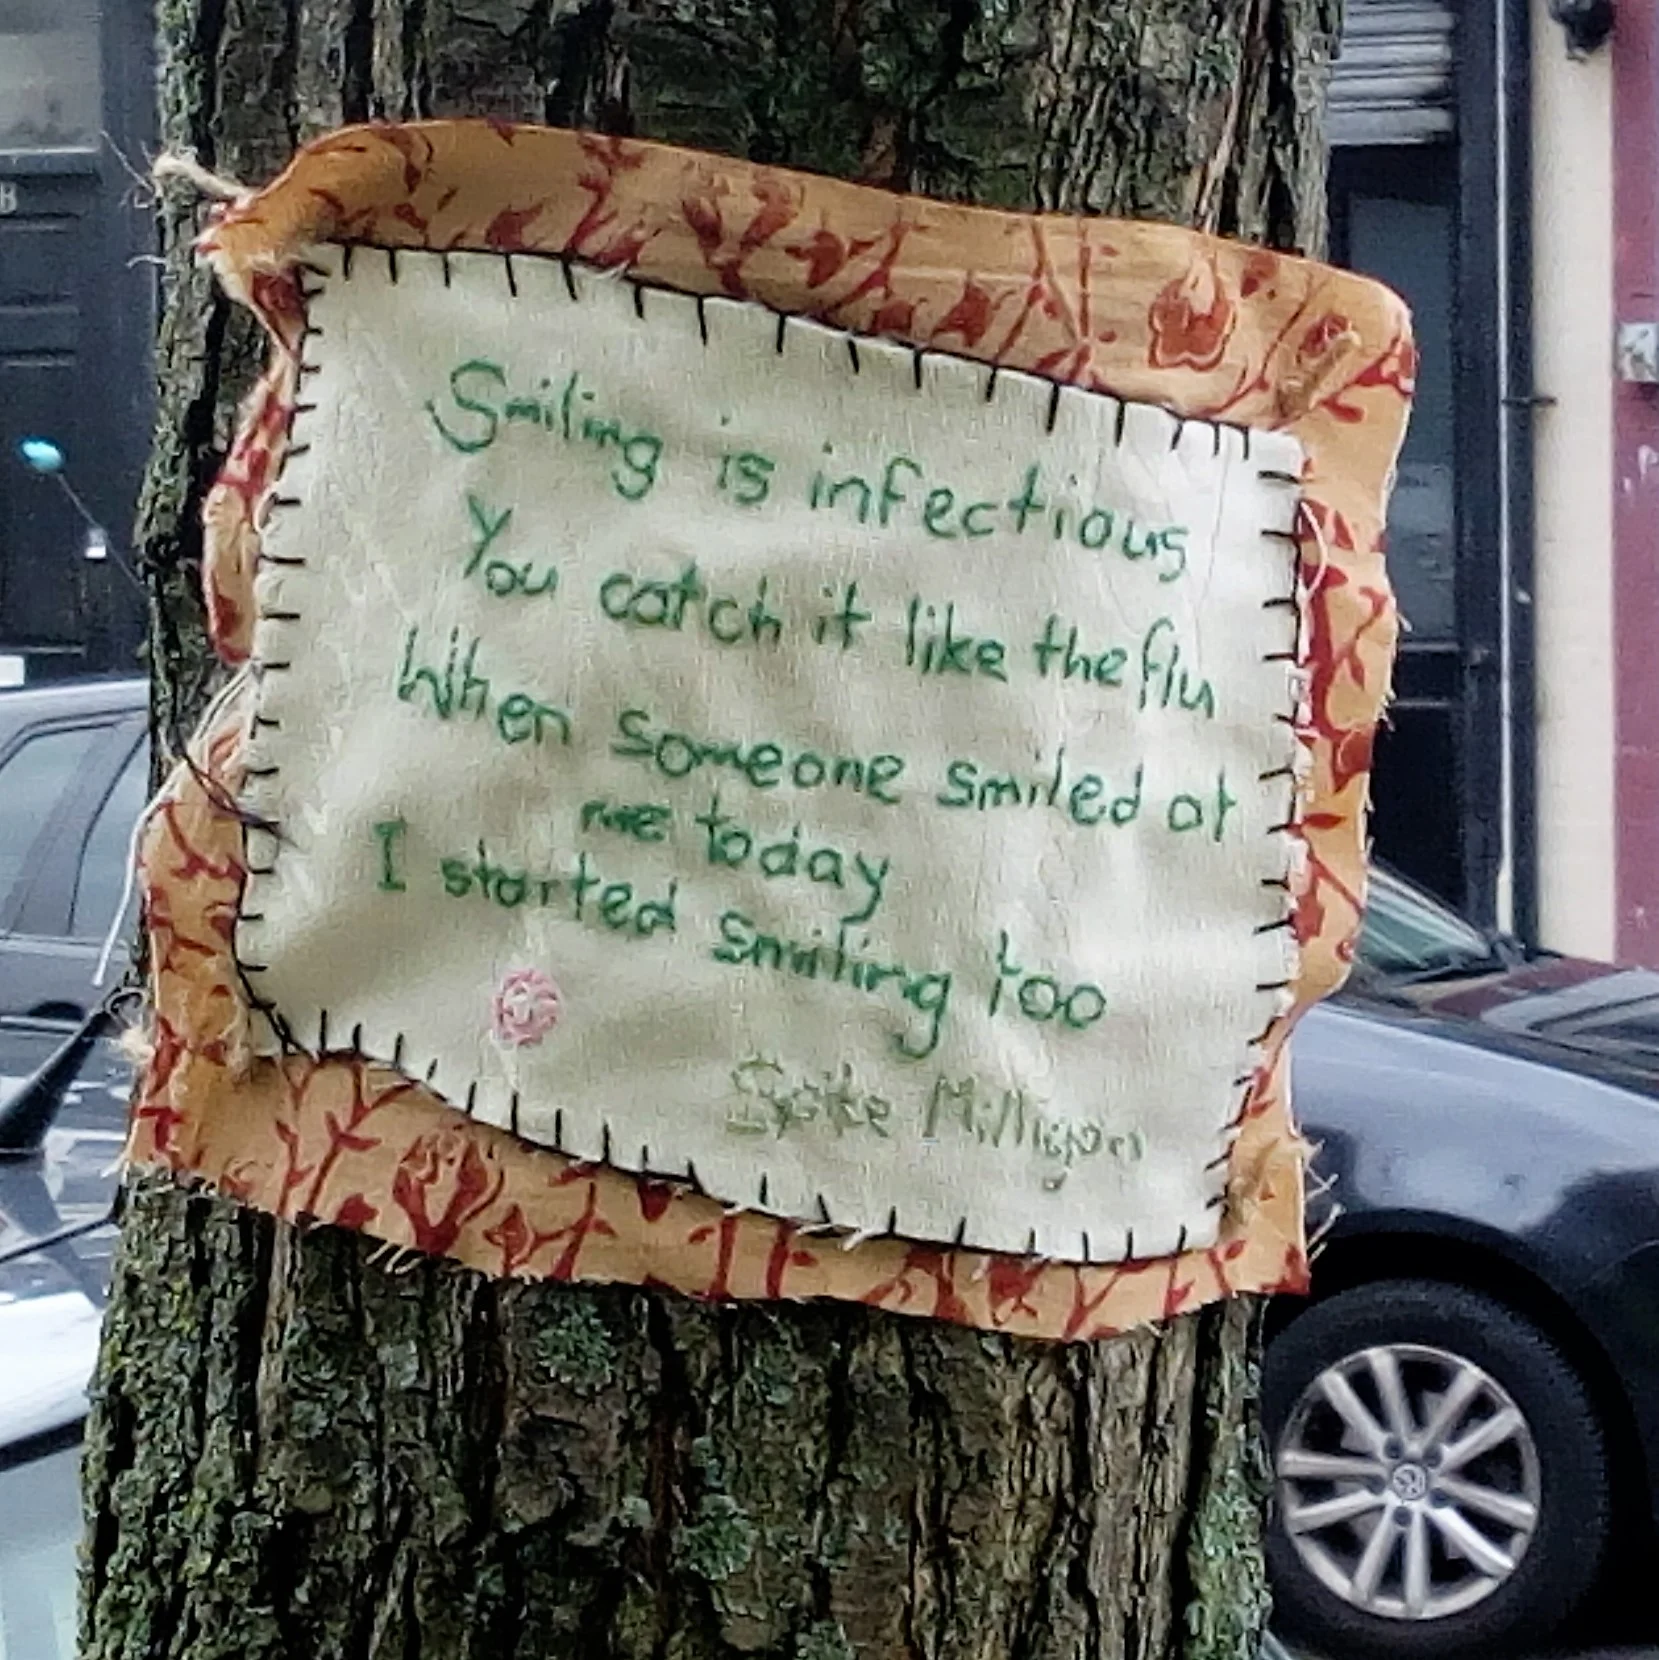 Smiling is infectious
You catch it like the flu
When someone smiled at
me today
I started smiling too
Spike Milligan